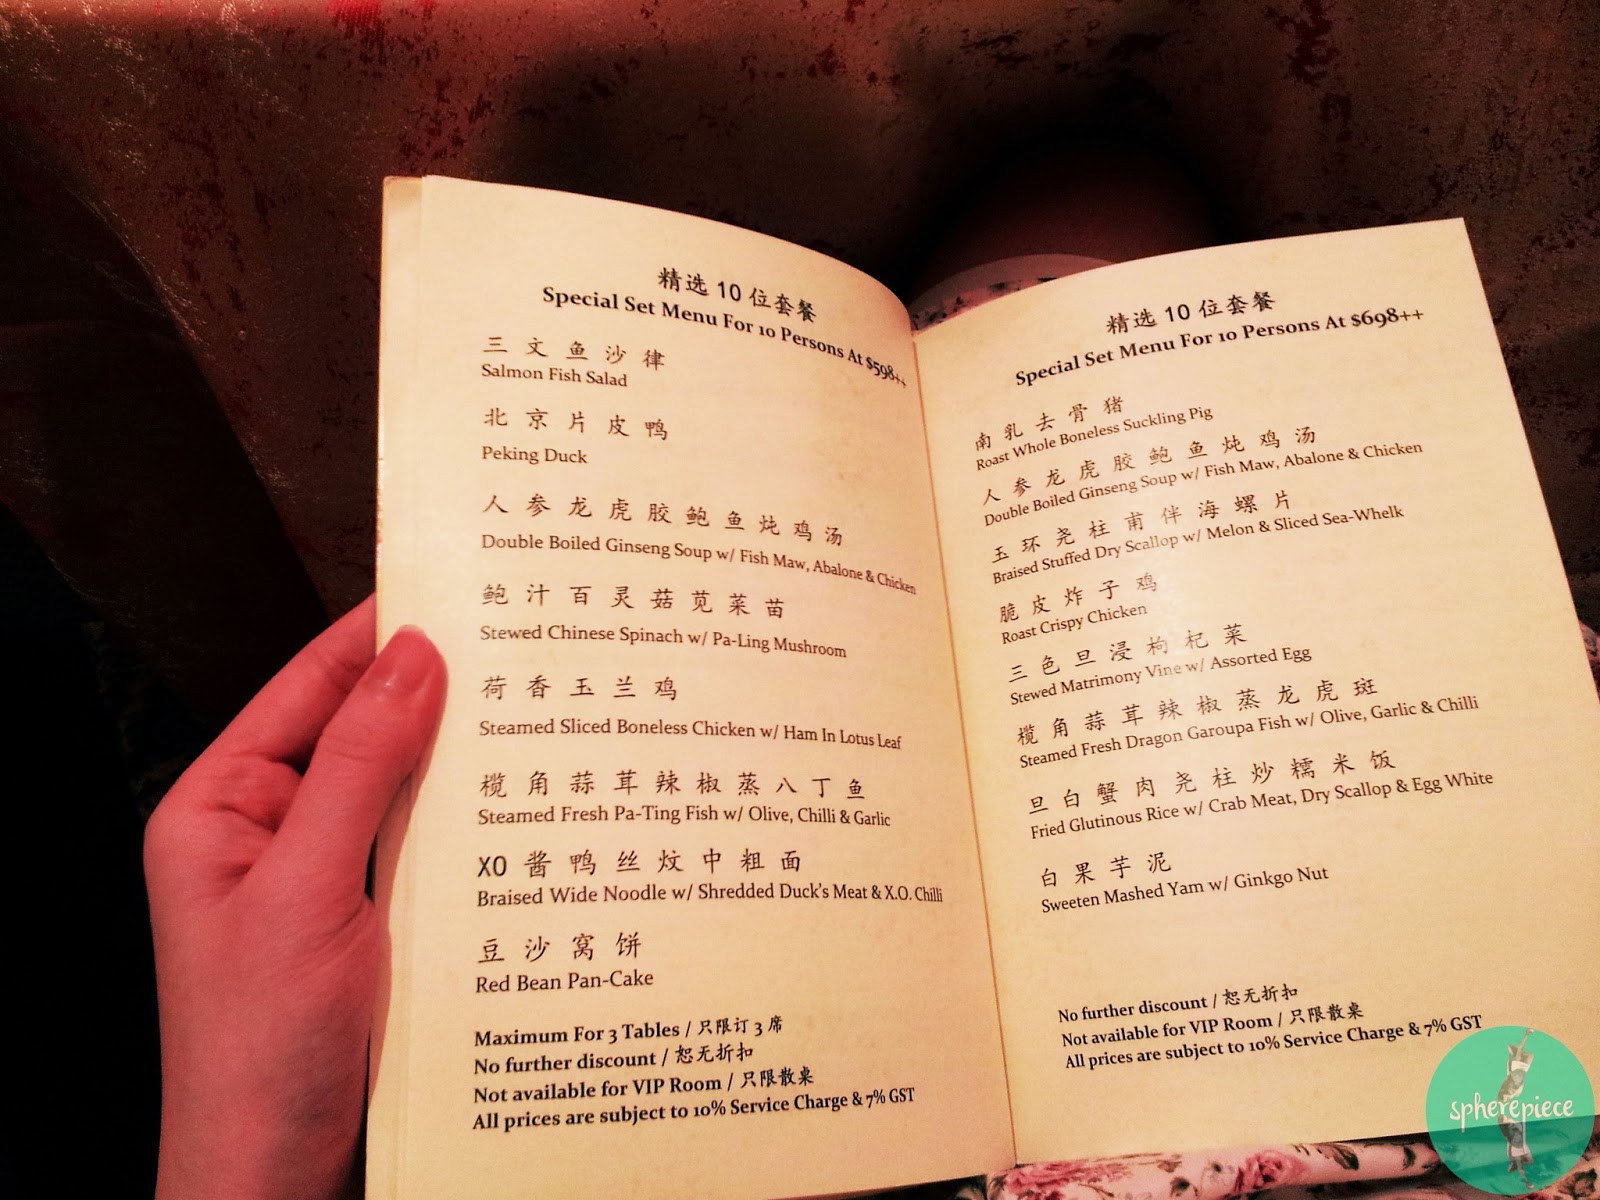 精选 10 位套餐
Special Set Menu For 10 Persons At $598++
三文鱼沙律
Salmon Fish Salad
北京片皮鸭
Peking Duck
人参龙虎胶鲍鱼炖鸡汤
Double Boiled Ginseng Soup w/ Fish Maw, Abalone & Chicken
鲍汁百灵菇苋菜苗
Stewed Chinese Spinach w/ Pa-Ling Mushroom
荷香玉兰鸡
Steamed Sliced Boneless Chicken w/ Ham In Lotus Leaf
榄角蒜茸辣椒蒸八丁鱼
Steamed Fresh Pa-Ting Fish w/ Olive, Chilli & Garlic
XO 酱鸭丝炆中粗面
Braised Wide Noodle w/ Shredded Duck's Meat & X.O. Chilli
豆沙窝饼
Red Bean Pan-Cake
Maximum For 3 Tables / 只限订 3 席
No further discount / 恕无折扣
Not available for VIP Room / 只限散桌
All prices are subject to 10% Service Charge & 7% GST
精选 10 位套餐
Special Set Menu For 10 Persons At $698++
南乳去骨猪
Roast Whole Boneless Suckling Pig
人参龙虎胶鲍鱼炖鸡汤
Double Boiled Ginseng Soup w/ Fish Maw, Abalone & Chicken
玉环尧柱甫伴海螺片
Braised Stuffed Dry Scallop w/ Melon & Sliced Sea-Whelk
脆皮炸子鸡
Roast Crispy Chicken
三色旦浸枸杞菜
Stewed Matrimony Vine w/ Assorted Egg
榄角蒜茸辣椒蒸龙虎斑
Steamed Fresh Dragon Garoupa Fish w/ Olive, Garlic & Chilli
旦白蟹肉尧柱炒糯米饭
Fried Glutinous Rice w/ Crab Meat, Dry Scallop & Egg White
白果芋泥
Sweeten Mashed Yam w/ Ginkgo Nut
No further discount / 恕无折扣
Not available for VIP Room / 只限散桌
All prices are subject to 10% Service Charge & 7% GST
spherepiece